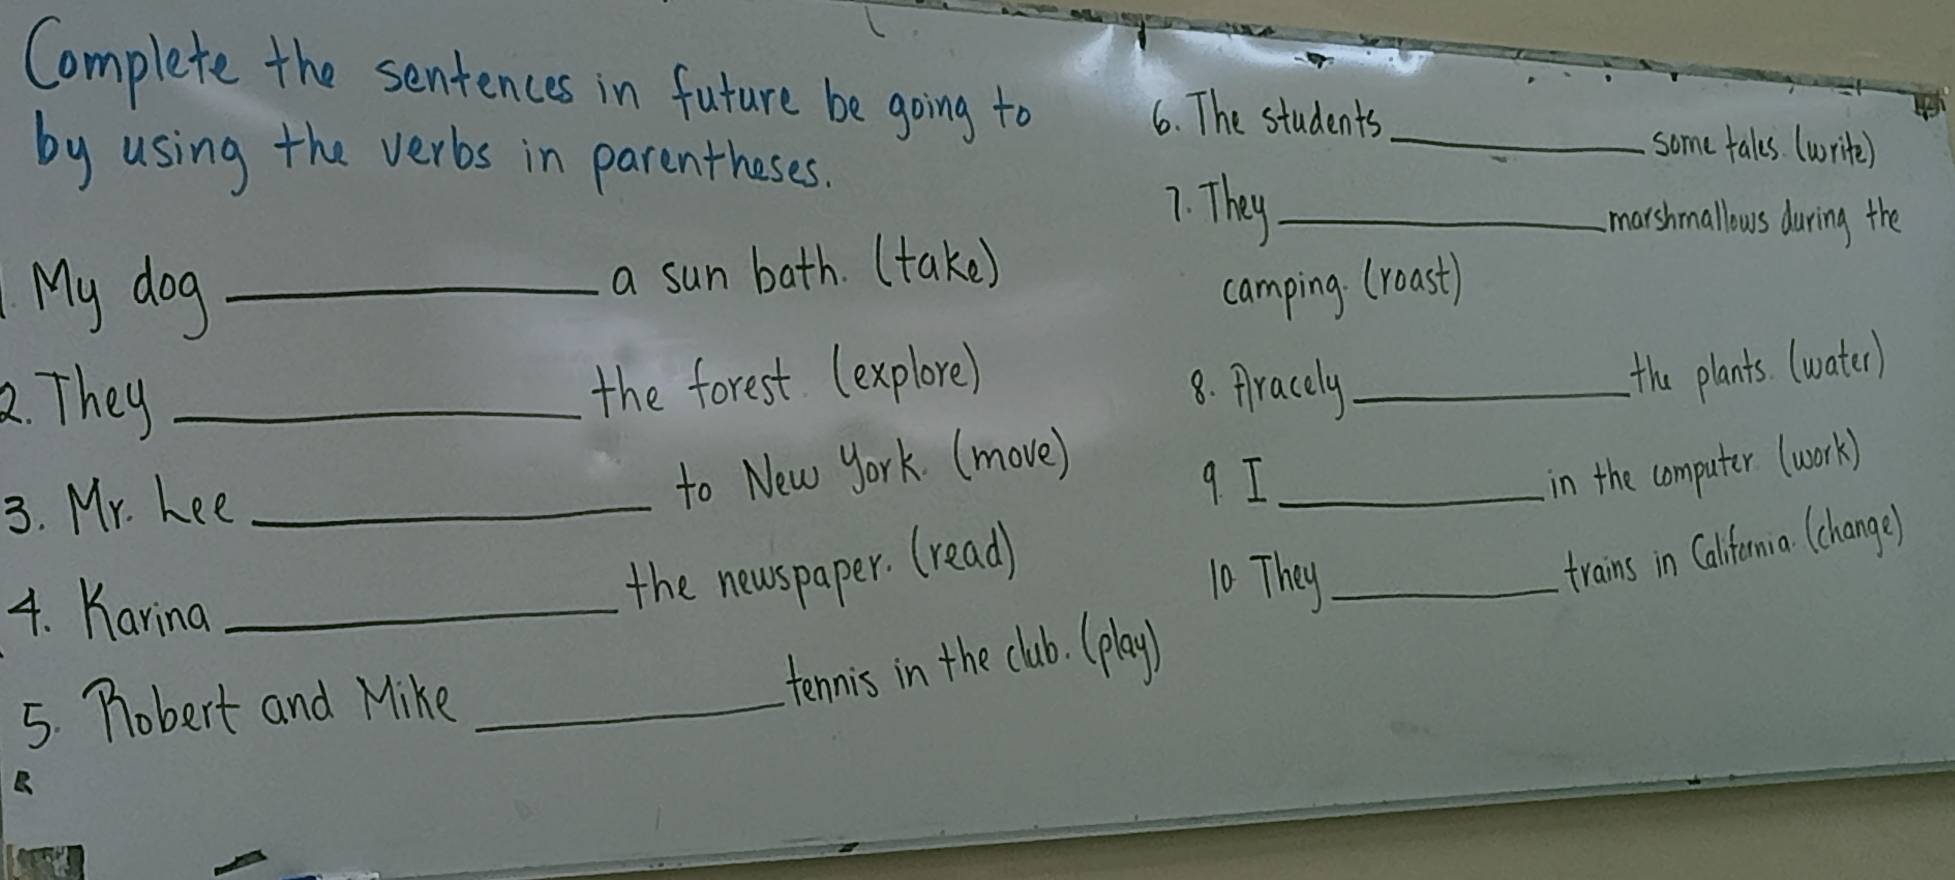 Complete the sentences in future be going to
by using the verbs in parentheses.
1. My dog ____________ a sun bath. (take)
2. They ____________ the forest. (explore)
3. Mr. Lee ____________ to New York. (move)
4. Karina ____________ the newspaper. (read)
5. Robert and Mike ____________ tennis in the club. (play)
6. The students ____________ some tales. (write)
7. They ____________ marshmallows during the
camping. (roast)
8. Aracely ____________ the plants. (water)
9. I ____________ in the computer. (work)
10 They ____________ trains in California. (change)